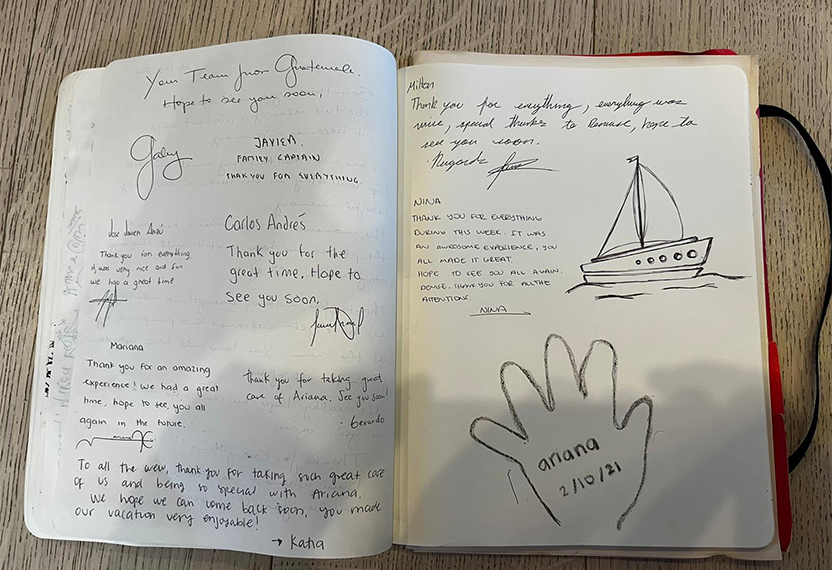 Your Team from Guatemala.
Hope to see you soon,
Gaby
JAVIER.
FAMILY CAPTAIN
THANK YOU FOR EVERYTHING.
Jose Javier
Thank you for everything
it was very nice and fun
we had a great time
Carlos Andrés
Thank you for the
great time. Hope to
see you soon.
Mariana
Thank you for an amazing
experience! we had a great
time, hope to see, you all
again in the future.
Thank you for taking great
care of Ariana. See you soon!
- Gerardo
To all the crew, thank you for taking such great care
of us and being so special with Ariana.
We hope we can come back soon, you made
our vacation very enjoyable!
→ Katia
Milton
Thank you for everything, everything was
nice, special thanks to Denisse, hope to
see you soon.
Regards
NINA
THANK YOU FOR EVERYTHING
DURING THIS WEEK. IT WAS
AN AWESOME EXPERIENCE, YOU
ALL MADE IT GREAT.
HOPE TO SEE YOU ALL AGAIN.
DENISE, THANK YOU FOR ALL THE
ATENTIONS.
NINA
ariana
2/10/21